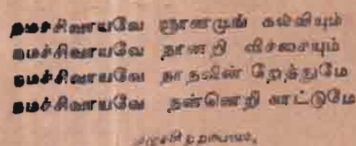 நமச்சிவாயவே ஞானமுங் கல்வியும்
நமச்சிவாயவே நானறி விச்சையும்
நமச்சிவாயவே நாநவின் றேத்துமே
நமச்சிவாயவே நன்னெறி காட்டுமே